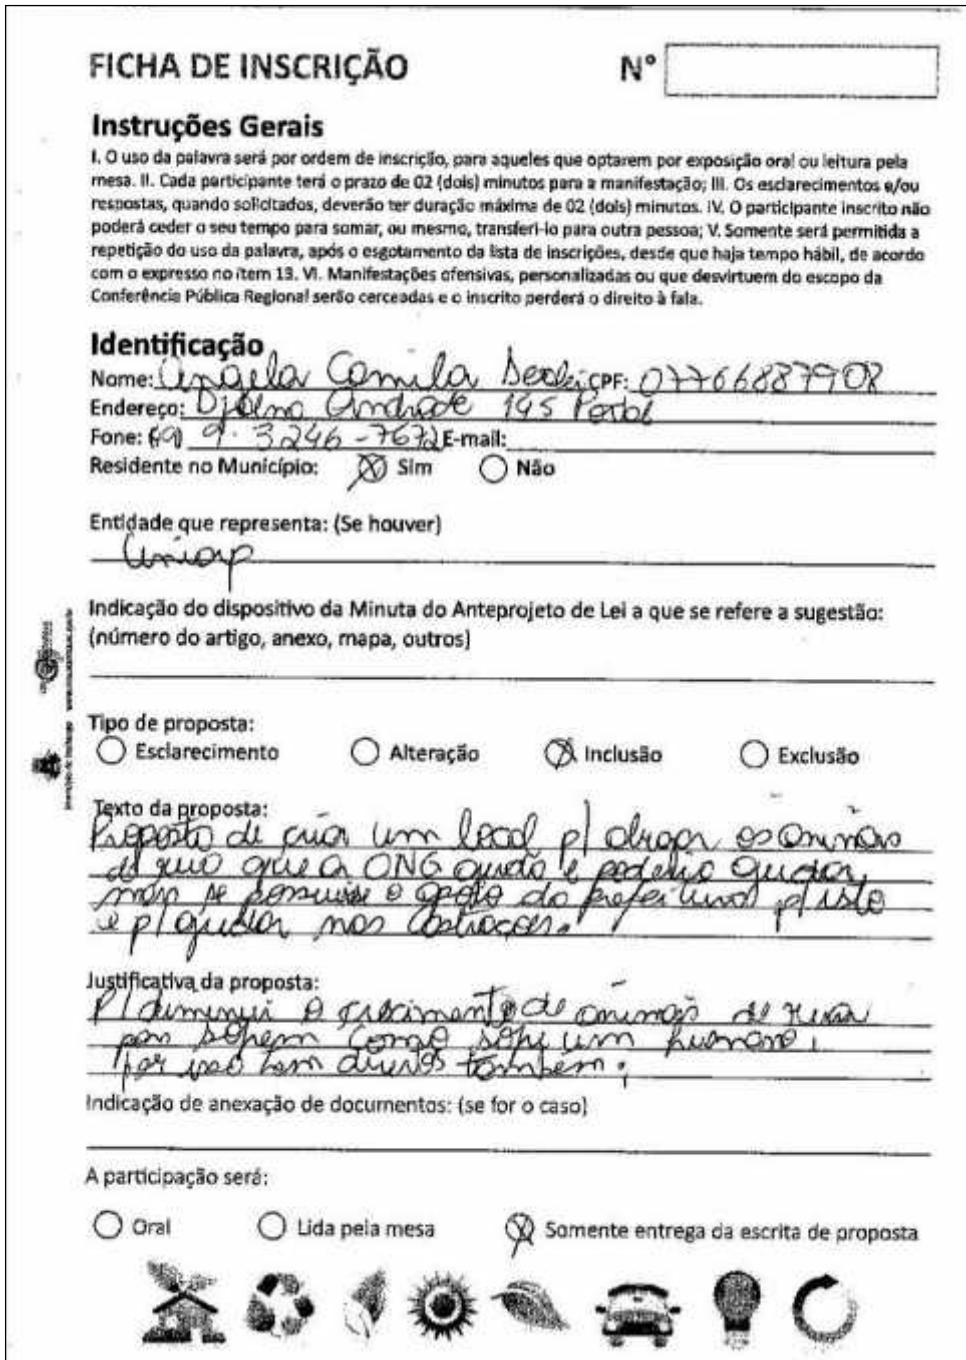 FICHA DE INSCRIÇÃO
N°
Instruções Gerais
I. O uso da palavra será por ordem de inscrição, para aqueles que optarem por exposição oral ou leitura pela
mesa. II. Cada participante terá o prazo de 02 (dois) minutos para a manifestação; III. Os esclarecimentos e/ou
respostas, quando solicitados, deverão ter duração máxima de 02 (dois) minutos. IV. O participante inscrito não
poderá ceder o seu tempo para somar, ou mesmo, transferi-lo para outra pessoa; V. Somente será permitida a
repetição do uso da palavra, após o esgotamento da lista de inscrições, desde que haja tempo hábil, de acordo
com o expresso no item 13. VI. Manifestações ofensivas, personalizadas ou que desvirtuem do escopo da
Conferência Pública Regional serão cerceadas e o inscrito perderá o direito à fala.
Identificação
Nome: Angela Camila CPF: 07766887908
Endereço: Djalma Andrade 145 Portal
Fone: 9.3246-7672 E-mail:
Residente no Município: Sim Não
Entidade que representa: (Se houver)
Indicação do dispositivo da Minuta do Anteprojeto de Lei a que se refere a sugestão:
(número do artigo, anexo, mapa, outros)
Tipo de proposta:
Esclarecimento Alteração Inclusão Exclusão
Texto da proposta:
Proposta de criar um local p/ os animais
de rua que a ONG ajuda e poderia ajudar
mais se possuise o apoio da prefeitura p/ isto
e p/ ajudar nas castraçoes.
Justificativa da proposta:
P/ diminui o crescimento de animais de rua
como um humano,
por isso tem direitos também.
Indicação de anexação de documentos: (se for o caso)
A participação será:
Oral Lida pela mesa Somente entrega da escrita de proposta